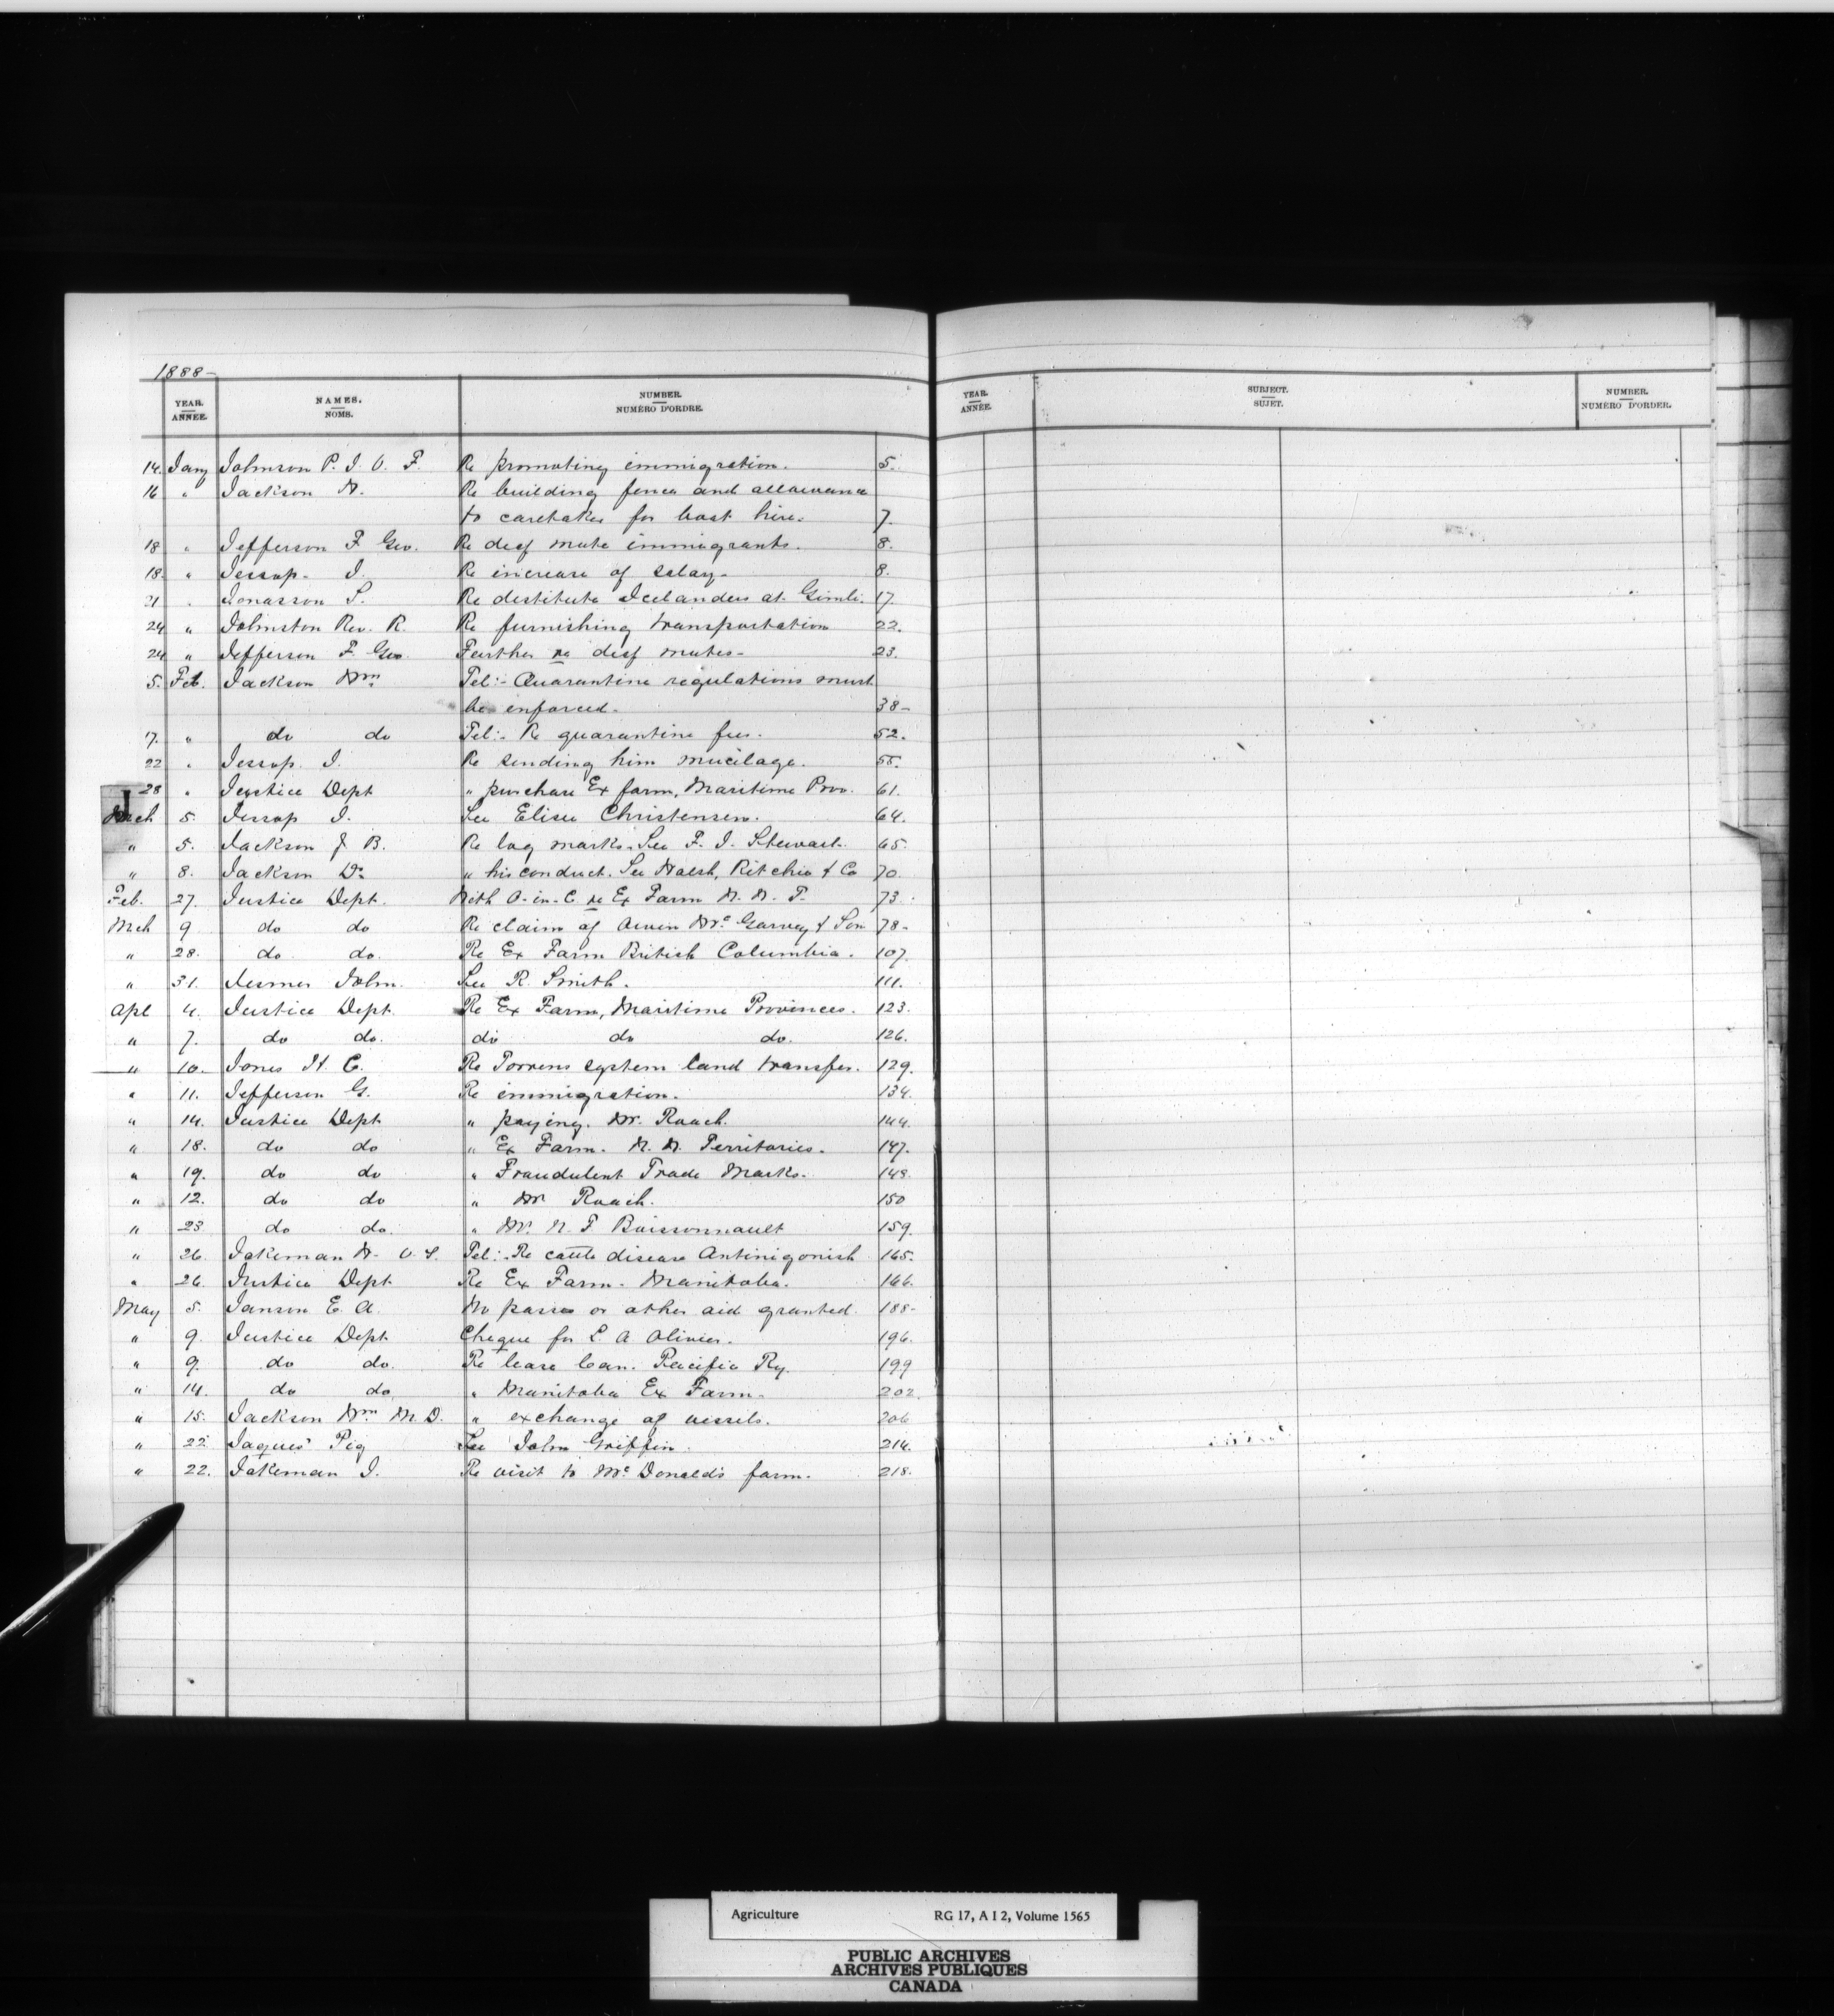 1888-
YEAR. ANNÉE. NAMES. NOMS. NUMBER. NUMÉRO D'ORDRE. YEAR. ANNÉE. SUBJECT. SUJET. NUMBER. NUMÉRO D'ORDER.
14. Jany Johnson P. J. O. F. Re promoting immigration. 5.
16 " Jackson W. Re building fence and allowance
to caretaker for boat hire. 7.
18 " Jefferson F. Geo. Re deaf mute immigrants. 8.
18. " Jessop. J. Re increase of salary- 8.
21 " Jonasson S. Re destitute Icelanders at Gimli. 17.
24 " Johnston Rev. R. Re furnishing transportation 22.
24 " Jefferson F. Geo Further re deaf mutes- 23.
5. Feb. Jackson Wm Tel:- Quarantine regulations must
be enforced- 38-
17. " do do Tel:- Re quarantine fees. 52.
22 " Jessop. J. Re sending him mucilage. 55.
28 " Justice Dept " purchase Ex farm, Maritime Prov. 61.
J
Mch 5. Jessop J. See Elise Christensen. 64.
" 5. Jackson J. B. Re log marks. See F. J. Stewart. 65.
" 8. Jackson Dr " his conduct. See Walsh, Ritchie & Co 70
Feb. 27. Justice Dept. With O-in-C re Ex Farm N. W. T. 73.
Mch 9 do do Re claim of Owen McGarvey & Son 78-
" 28. do do. Re Ex Farm British Columbia. 107.
" 31. John. See R. Smith. 111.
Apl 4. Justice Dept. Re Ex Farm, Maritime Provinces. 123.
" 7. do do. do do do. 126.
" 10. Jones H. C. Re Torrens system land transfer. 129.
" 11. Jefferson G. Re immigration. 134.
" 14. Justice Dept " paying. Mr. Roach. 144.
" 18. do do " Ex Farm. N. W. Territories. 147.
" 19. do do " Fraudulent Trade Marks. 148.
" 12. do do " Mr Roach. 150
" 23. do do. " Mr. N. P Boissonnault 159.
" 26. Jakeman W. V. S. Tel:- Re cattle disease Antinigonish 165.
" 26. Justice Dept Re Ex Farm. Manitoba. 166.
May 5. Janson E. A. No passes or other aid granted. 188-
" 9. Justice Dept Cheque for L. A Olivier. 196.
" 9. do do. Re lease Can. Pacific Ry. 199
" 14. do do " Manitoba Ex Farm- 202.
" 15. Jackson Wm M. D. " exchange of vessels. 206
" 22. Jaques Pig See John Griffin. 214.
" 22. Jakeman J. Re visit to McDonald's farm. 218.
Agriculture RG 17, A I 2, Volume 1565
PUBLIC ARCHIVES
ARCHIVES PUBLIQUES
CANADA